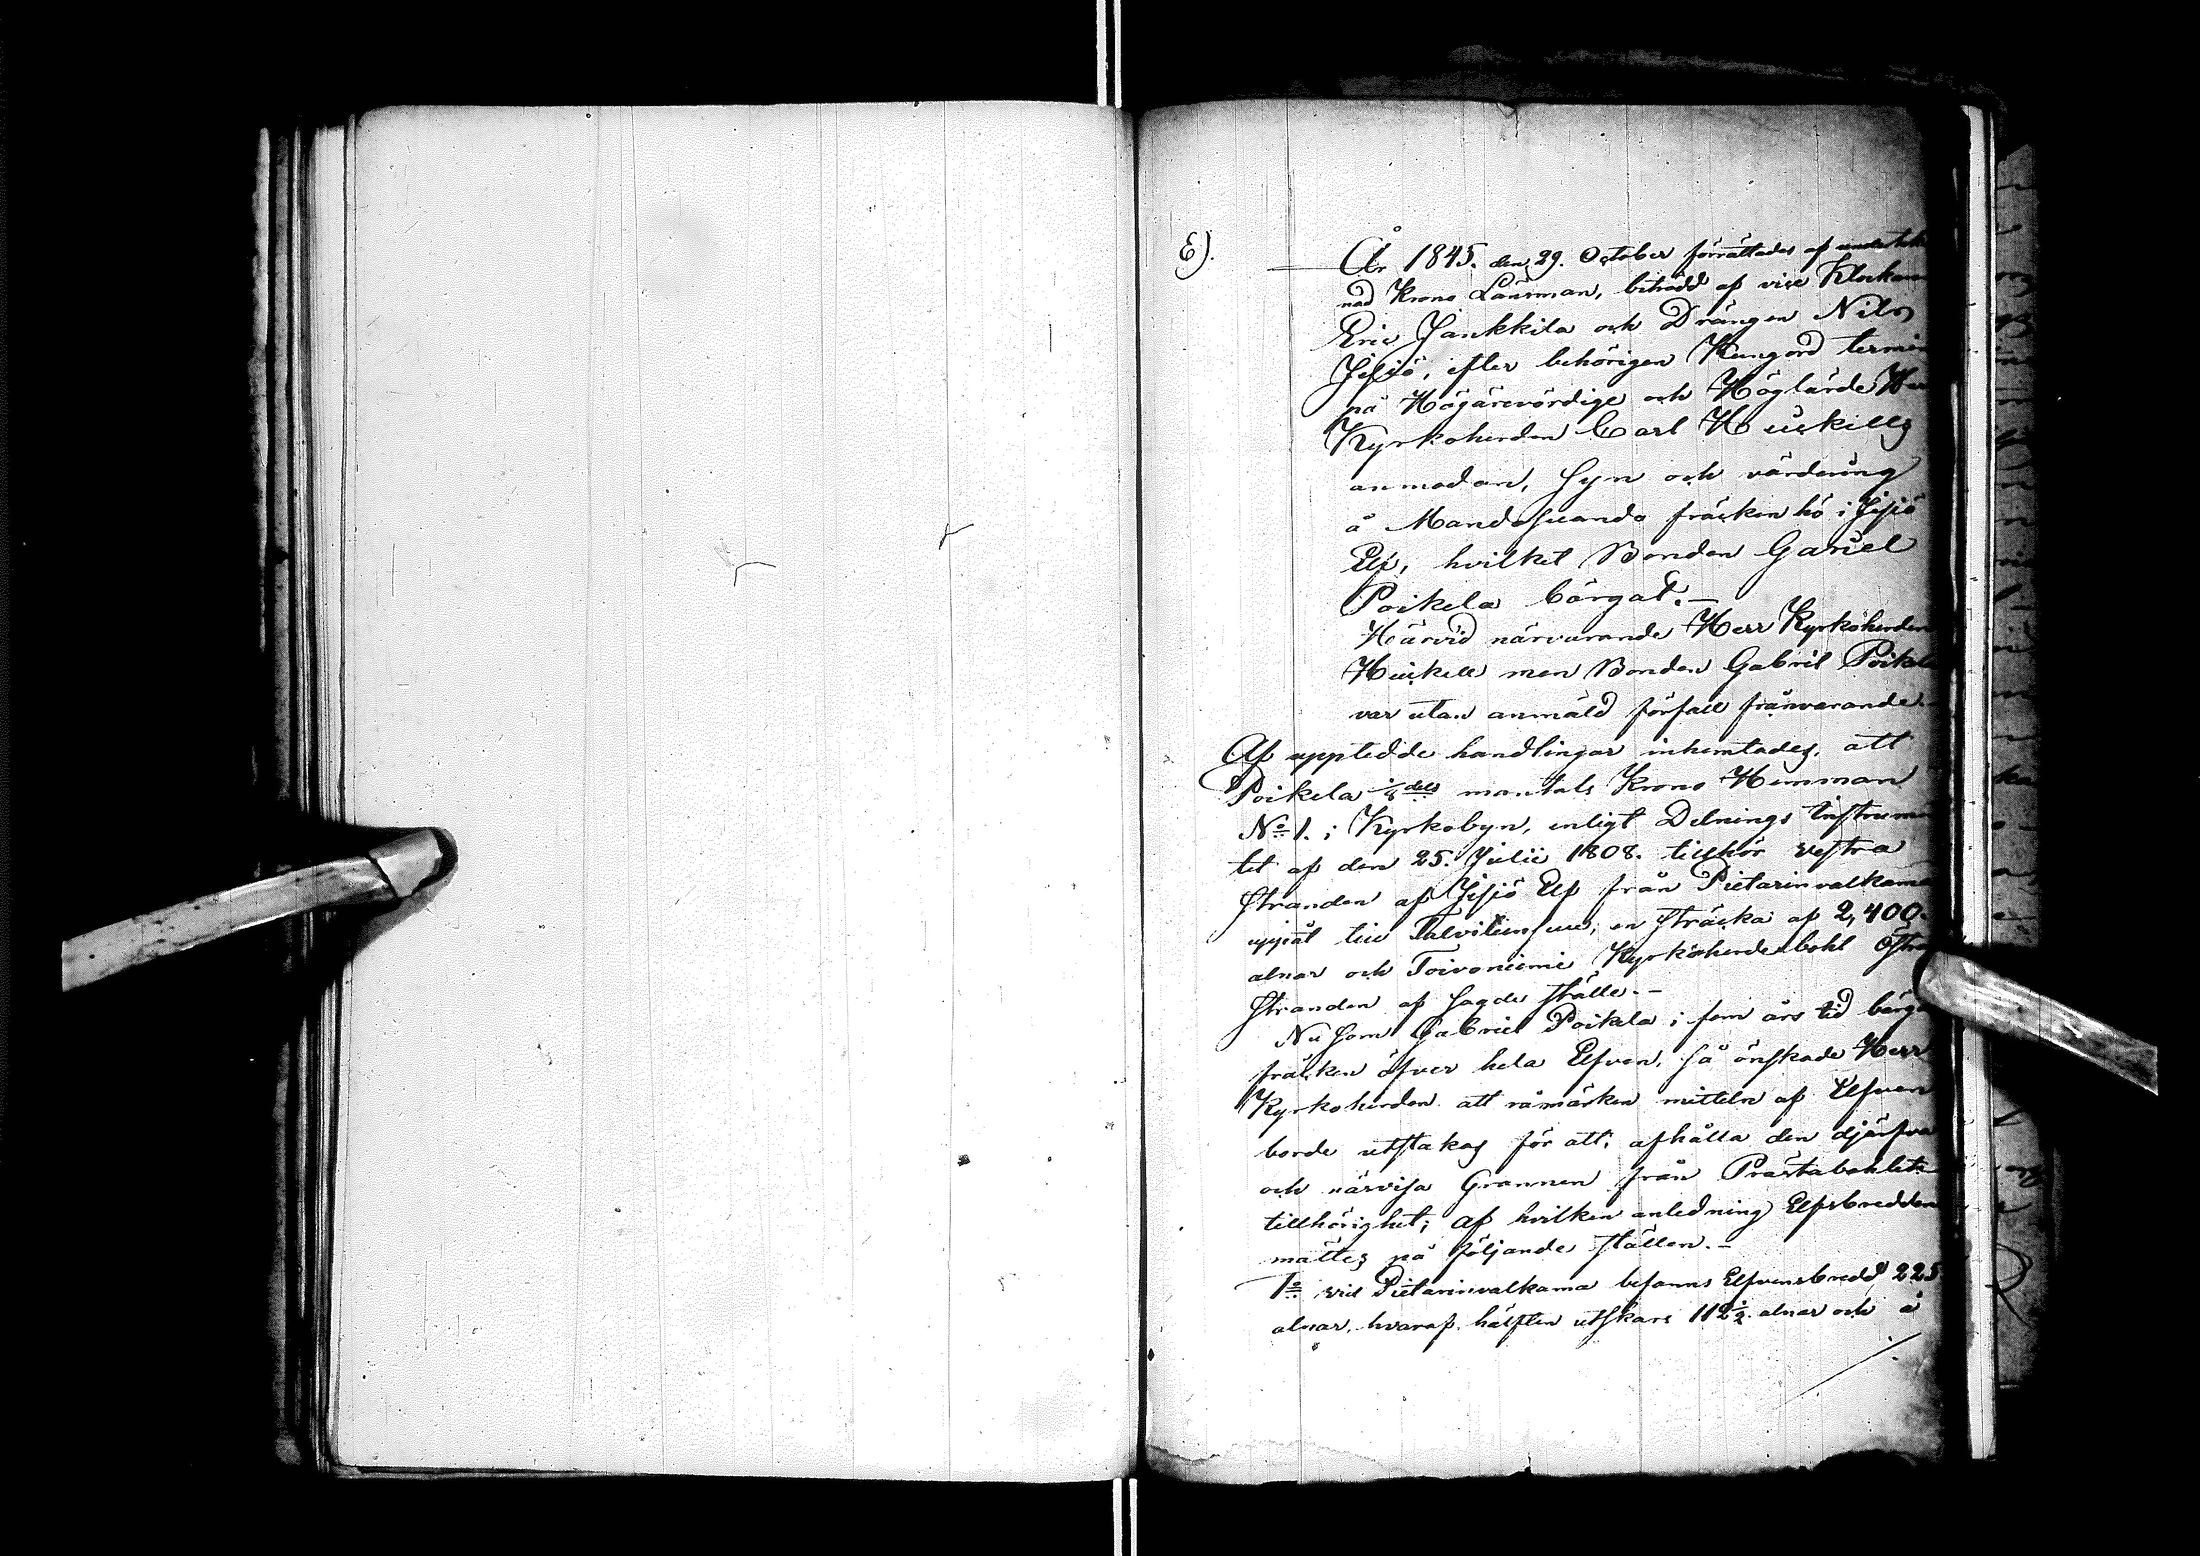 E).
År 1845. den 29. October förrättades af underteck
nad Krono Länsman, biträdd af vice Klockaren
Eric Jankkila och Drängen Nils
Jesjö, efter behörigen Kungjord termin
på Högärevördige och Höglärde Herr
Kyrkoherden Carl Heickells
anmodan, Syn och värdering
å Mandosuando fräken hö i Jesjö
Elf, hvilket Bonden Gabriel
Poikela bärgat.—
Härvid närvarande Herr Kyrkoherden
Heickell men Bonden Gabriel Poikela
var utan anmäld förfall frånvarande.
Af uppterdde handlingar inhemtades, att
Poikela 1/8 dels mantals Krono Hemman
No 1. i Kyrkobyn, enligt Delnings Instrumen
tet af den 25. Julii 1808. tillhör vestra
Stranden af Jesjö Elf från Pietarinvalkama
uppåt till Talvitiensuu, en sträcka af 2,400.
alnar och Toivoniemi Kyrkoherdebohl Östra
Stranden af sagde ställe.—
Nu som Gabriel Poikela i fem års tid bärgat
fräken öfver hela Elfven, så önskade Herr
Kyrkoherden att råmärken mitteln af Elfven
borde utstakas för att, afhålla den djärfva
och närvisa Grannen från Prästabohlets
tillhörighet; af hvilken anledning Elfsbredden
mättes på följande ställen.—
1o vid Pietarinvalkama befanns Elfvensbredd 225
alnar, hvaraf hälften utskars 112 1/2 alnar och å